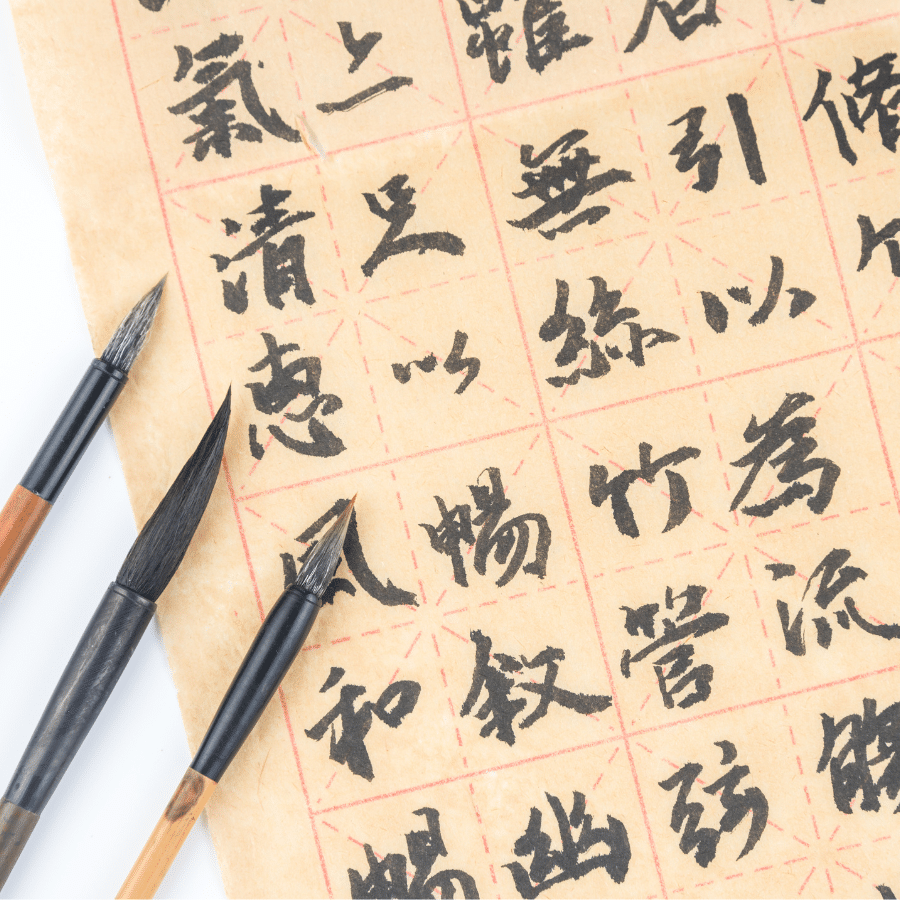 脩
右引以為流觴
雖無絲竹管弦
足以暢敘幽
氣清惠風和暢